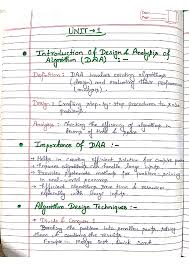 Date
Page
UNIT → 1
Introduction Of Design & Analysis of
Algorithm (DAA) :-
Definition: DAA involves creating algorithms
(design) and evaluating their performance
(analysis).
Design: Crafting step-by-step procedures to solve
problems.
Analysis: the efficiency of algorithms in
terms of time & space.
Importance of DAA :-
→ Helps in creating efficient solution for complex problems
→ algorithms can handle large inputs
→ Provides systematic methods for problem-solving
in
→ Efficient algorithms save time & resources,
especially with large inputs.
Algorithm Design Techniques :-
→ Divide & Conquer :
Breaking the problem into smaller parts, solving
them, & combining the results
Example :- Merge Sort, Quick Sort